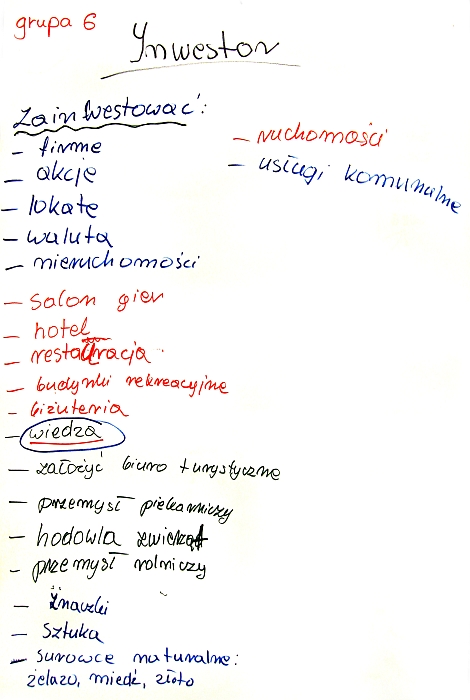 grupa 6
Inwestor
zainwestować:
– firmę
– akcje
– lokatę
– waluta
– nieruchomości
– salon gier
– hotel
– restauracja
– budynki rekreacyjne
– biżuteria
– wiedza
– założyć biuro turystyczne
– przemysł piekarniczy
– hodowla zwierząt
– przemysł rolniczy
– znaczki
– sztuka
– surowce naturalne:
żelazo, miedź, złoto
– ruchomości
– usługi komunalne